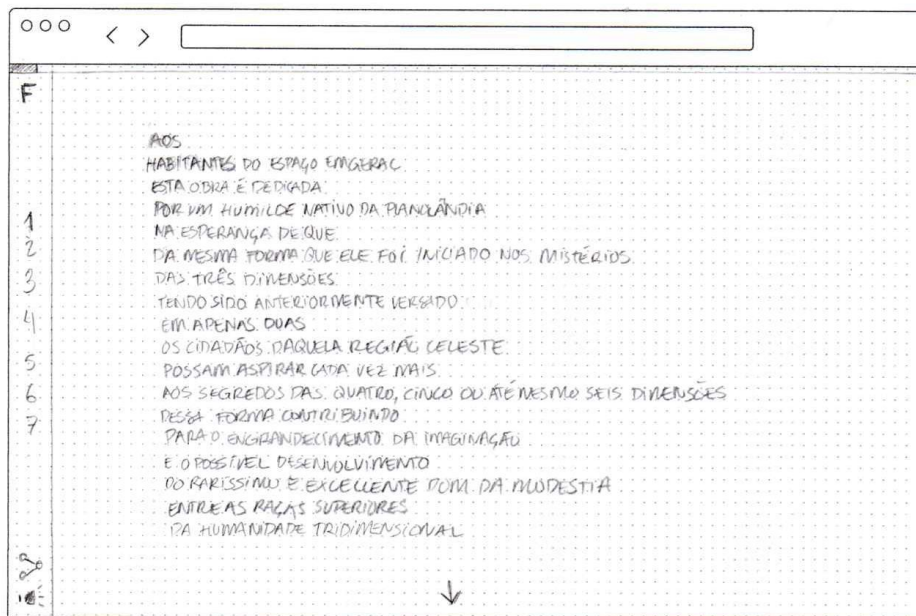 F
AOS
HABITANTES DO ESPAÇO EM GERAL
ESTA OBRA É DEDICADA
POR UM HUMILDE NATIVO DA PLANOLÂNDIA
NA ESPERANÇA DE QUE
DA MESMA FORMA QUE ELE FOI INICIADO NOS MISTÉRIOS
DAS TRÊS DIMENSÕES
TENDO SIDO ANTERIORMENTE VERSADO
EM APENAS DUAS
OS CIDADÃOS DAQUELA REGIÃO CELESTE
POSSAM ASPIRAR CADA VEZ MAIS
AOS SEGREDOS DAS QUATRO, CINCO OU ATÉ MESMO SEIS DIMENSÕES
DESSA FORMA CONTRIBUINDO
PARA O ENGRANDECIMENTO DA IMAGINAÇÃO
E O POSSÍVEL DESENVOLVIMENTO
DO RARÍSSIMO E EXCELLENTE DOM DA MODESTIA
ENTRE AS RAÇAS SUPERIORES
DA HUMANIDADE TRIDIMENSIONAL
1
2
3
4
5
6
7